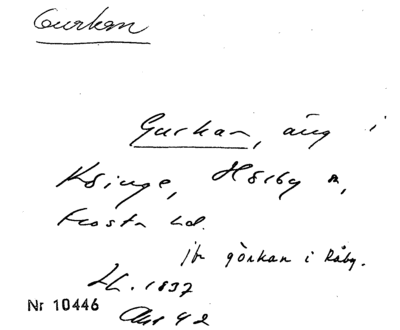 Gurkan
Gurkan, äng i
Köinge, Hörby sn,
Frosta hd.
jfr görkan i Råby.
LL. 1837
Akt 42
Nr 10446